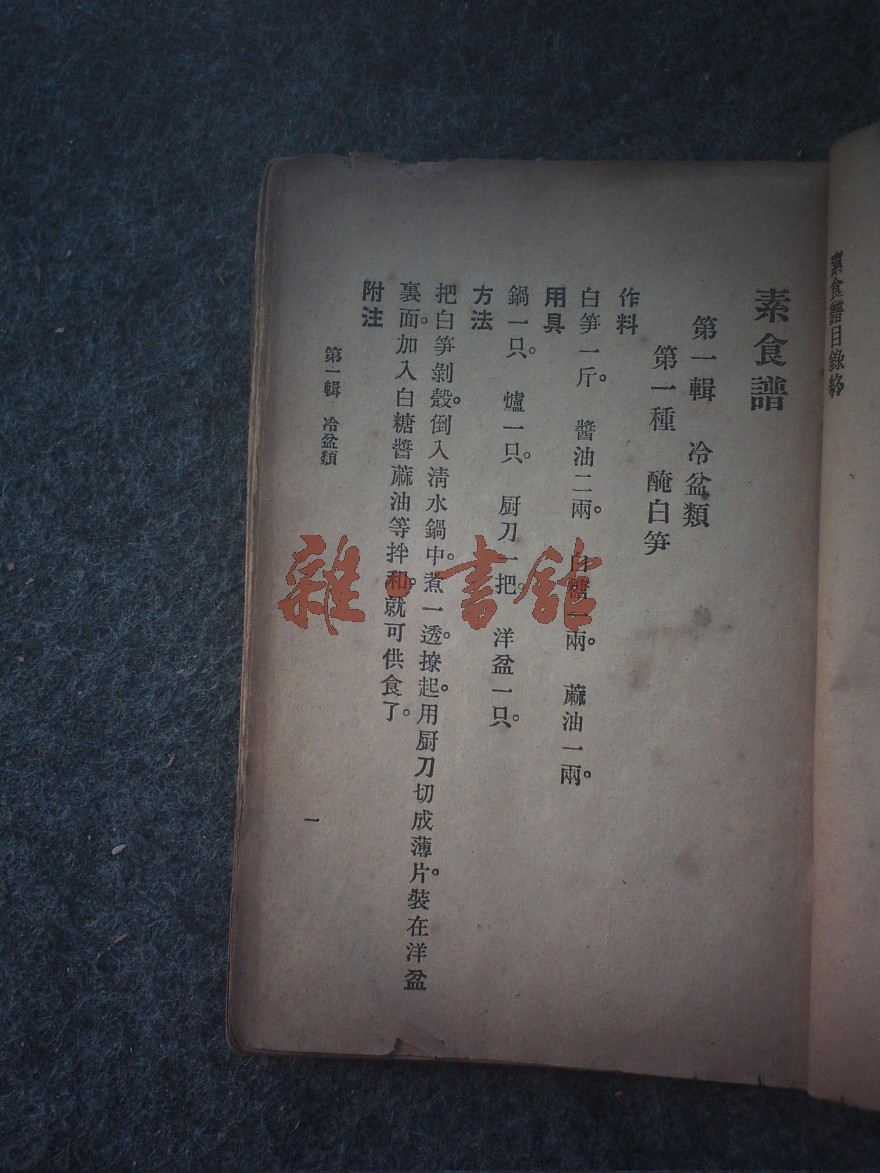 素食譜目錄終
素食譜
第一輯　冷盆類
第一種　醃白笋
作料
白笋一斤。　醬油二兩。　白糖一兩。　蔴油一兩。
用具
鍋一只。　爐一只。　厨刀一把。　洋盆一只。
方法
把白笋剝殼。倒入淸水鍋中。煮一透。撩起。用厨刀切成薄片。裝在洋盆
裏面。加入白糖醬蔴油等拌和。就可供食了。
附注
第一輯　冷盆類
一
雜·書舘